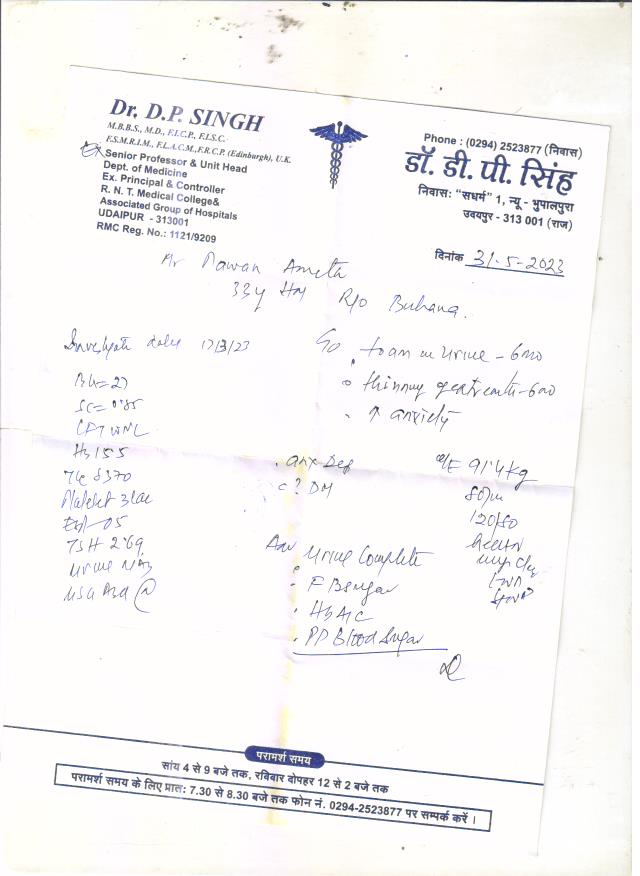 Dr. D.P. SINGH
M.B.B.S., M.D., F.I.C.P., F.I.S.C.
F.S.M.R.I.M., F.L.A.C.M., F.R.C.P. (Edinburgh), U.K.
Senior Professor & Unit Head
Dept. of Medicine
Ex. Principal & Controller
R. N. T. Medical College&
Associated Group of Hospitals
UDAIPUR - 313001
RMC Reg. No.: 1121/9209
Phone : (0294) 2523877 (निवास)
डॉ. डी. पी. सिंह
निवास: "सधर्म" 1, न्यू - भुपालपुरा
उदयपुर - 313 001 (राज)
दिनांक 31-5-2023
Mr Pawan Ameta
33y R/o
17/3/23
SC= 0.85
LFT WNL
Hb 15.5
TLC 8370
Platelet 3 lac
05
TSH 2.69
Urine NAD
USG Abd
foam in urine - 6mo
↑ anxiety
anx Dep
c ? DM
O/E 91.4 kg
80/m
120/80
Adv Urine Complete
F B sugar
HbA1C
PP Blood Sugar
परामर्श समय
सांय 4 से 9 बजे तक, रविवार दोपहर 12 से 2 बजे तक
परामर्श समय के लिए प्रातः 7.30 से 8.30 बजे तक फोन नं. 0294-2523877 पर सम्पर्क करें ।